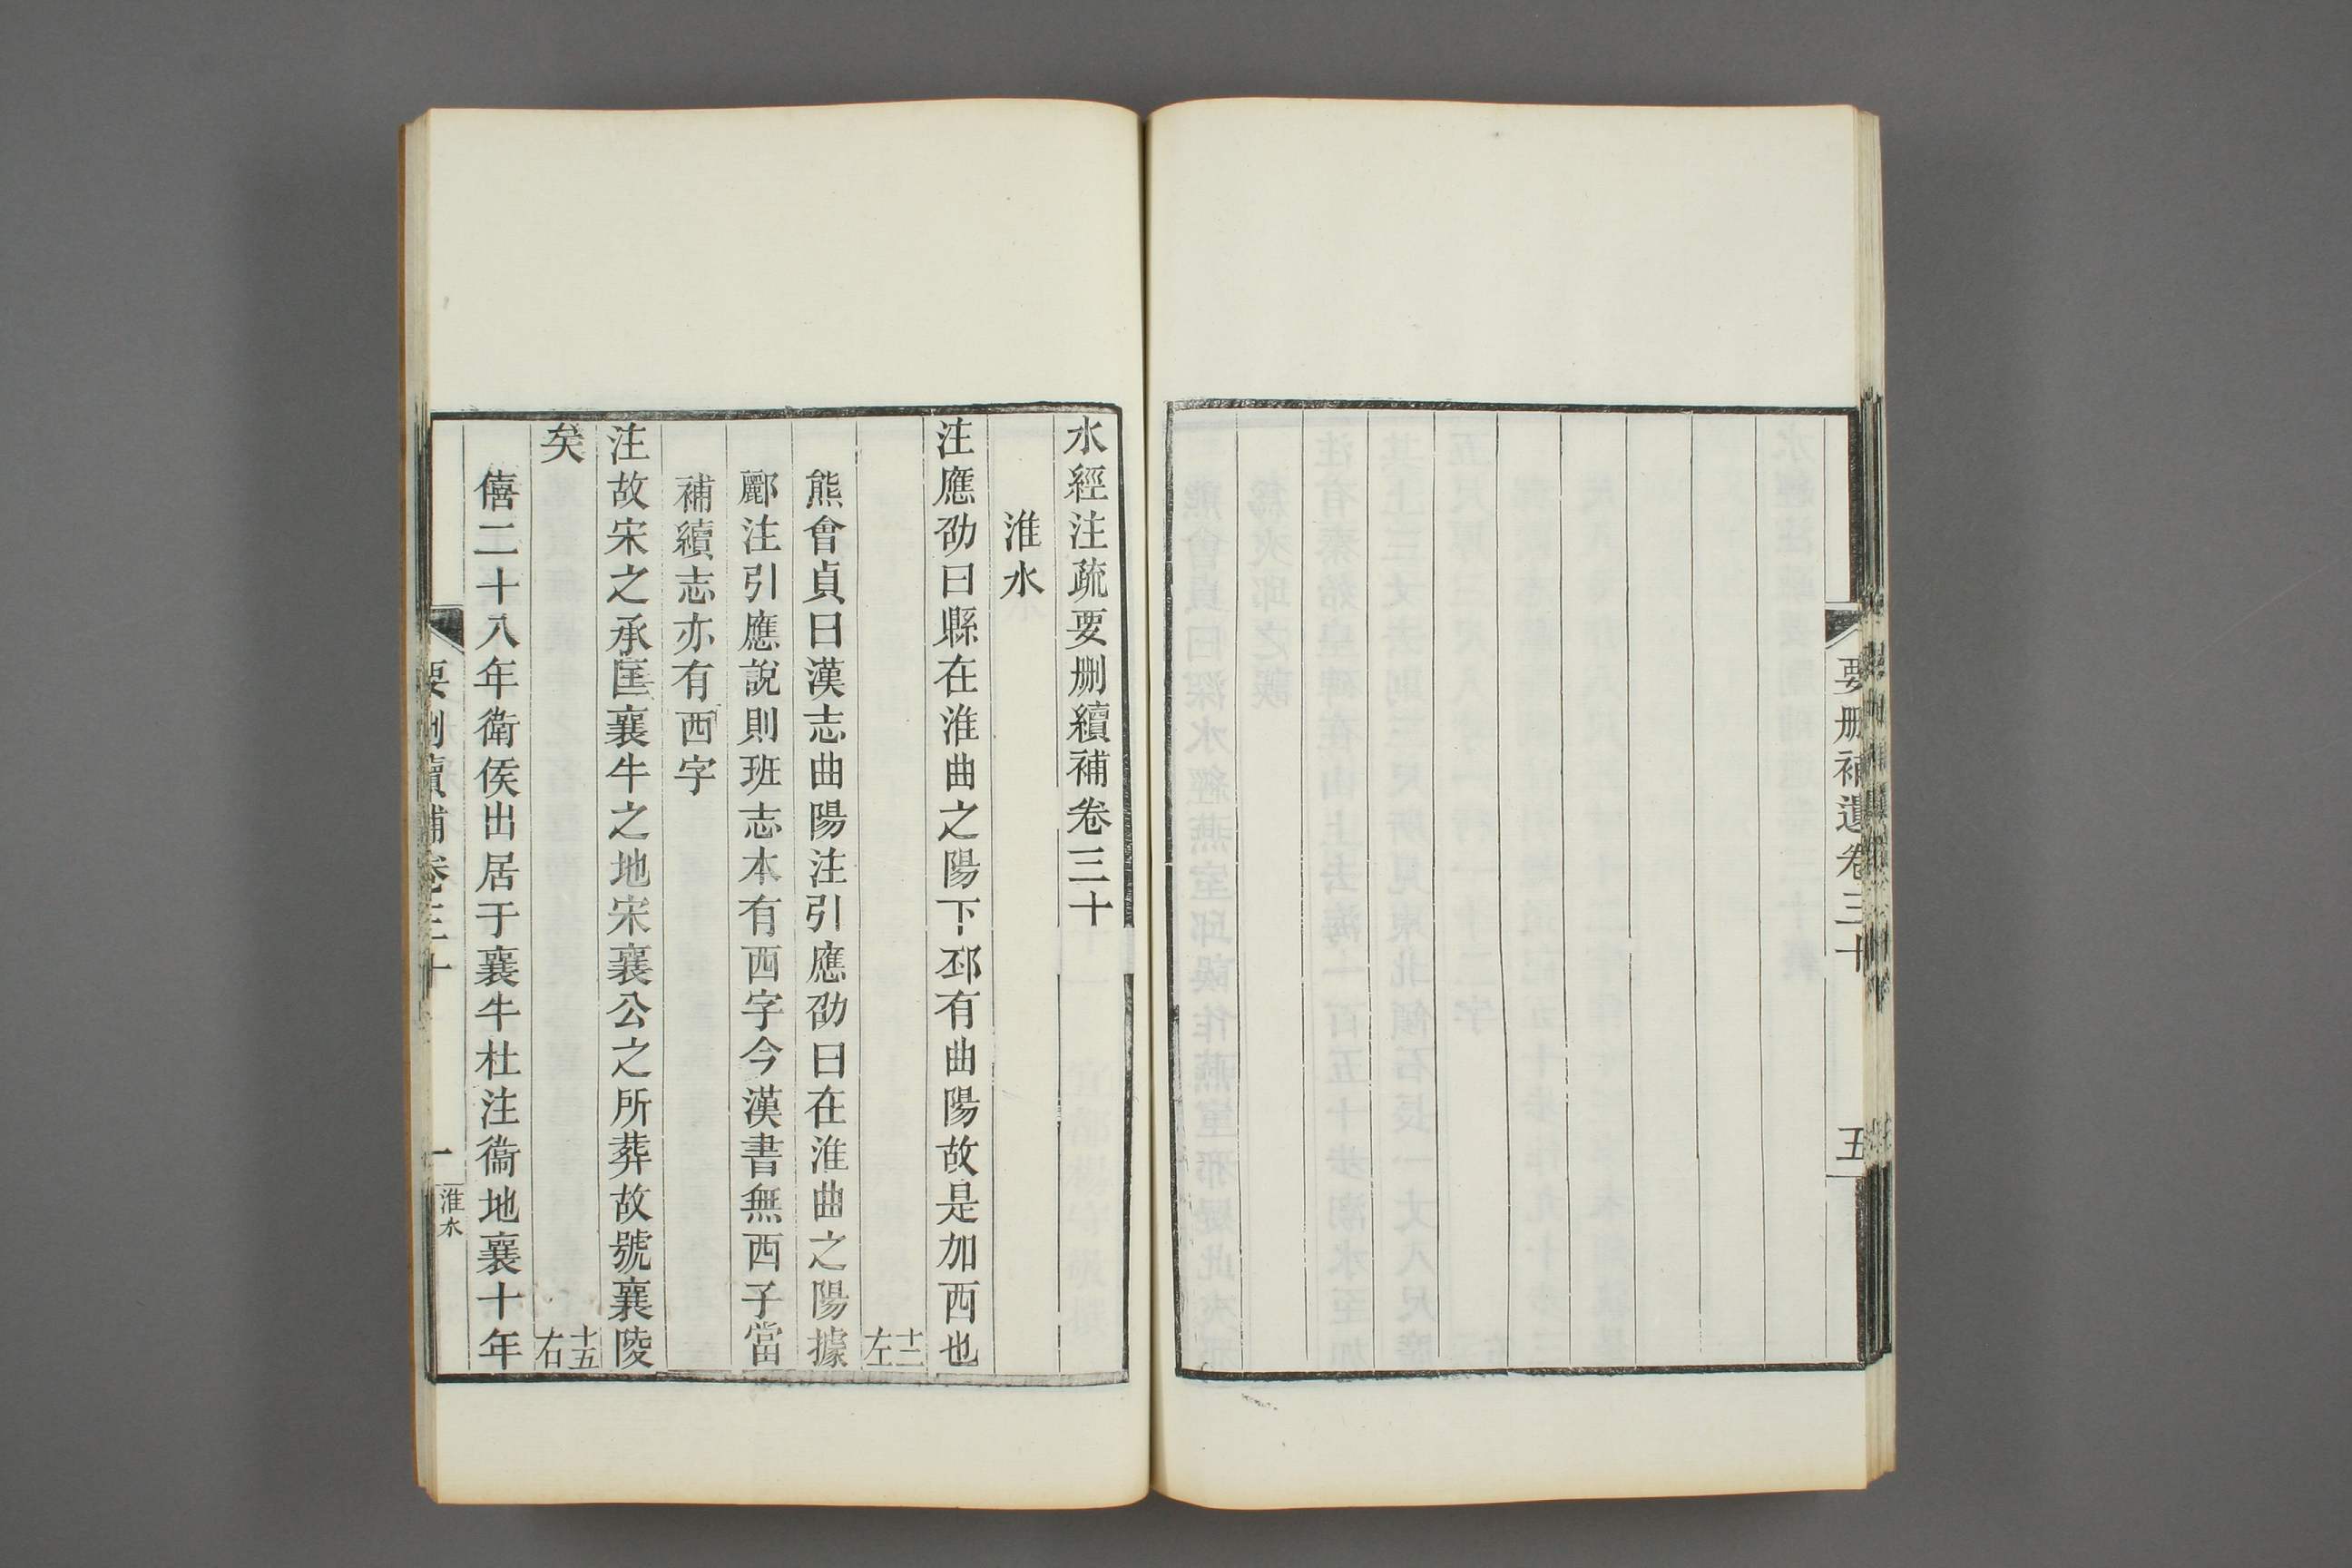 要刪補遺卷三十
五
水經注疏要刪續補卷三十
淮水
注應劭曰縣在淮曲之陽下邳有曲陽故是加西也
十二左
熊會貞曰漢志曲陽注引應劭曰在淮曲之陽據
酈注引應說則班志本有西字今漢書無西子當
補續志亦有西字
注故宋之承匡襄牛之地宋襄公之所葬故號襄陵
矣
十五右
僖二十八年衛侯出居于襄牛杜注衞地襄十年
要刪續補卷三十
一
淮水